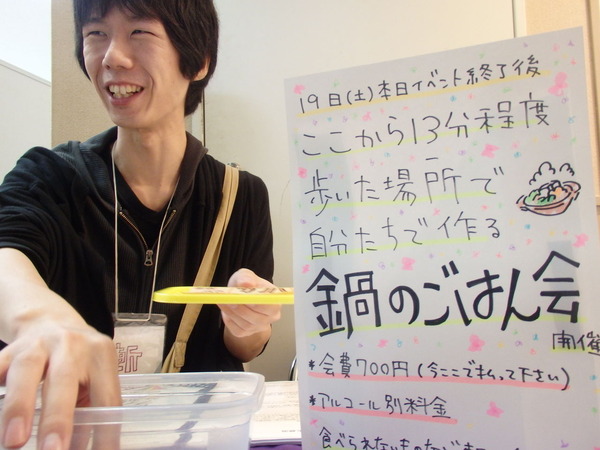 19日(土)本日イベント終了後
ここから13分程度
歩いた場所で
自分たちで作る
鍋のごはん会
開催
*会費700円(今ここで払って下さい)
*アルコール別料金
食べられないものなど
斬